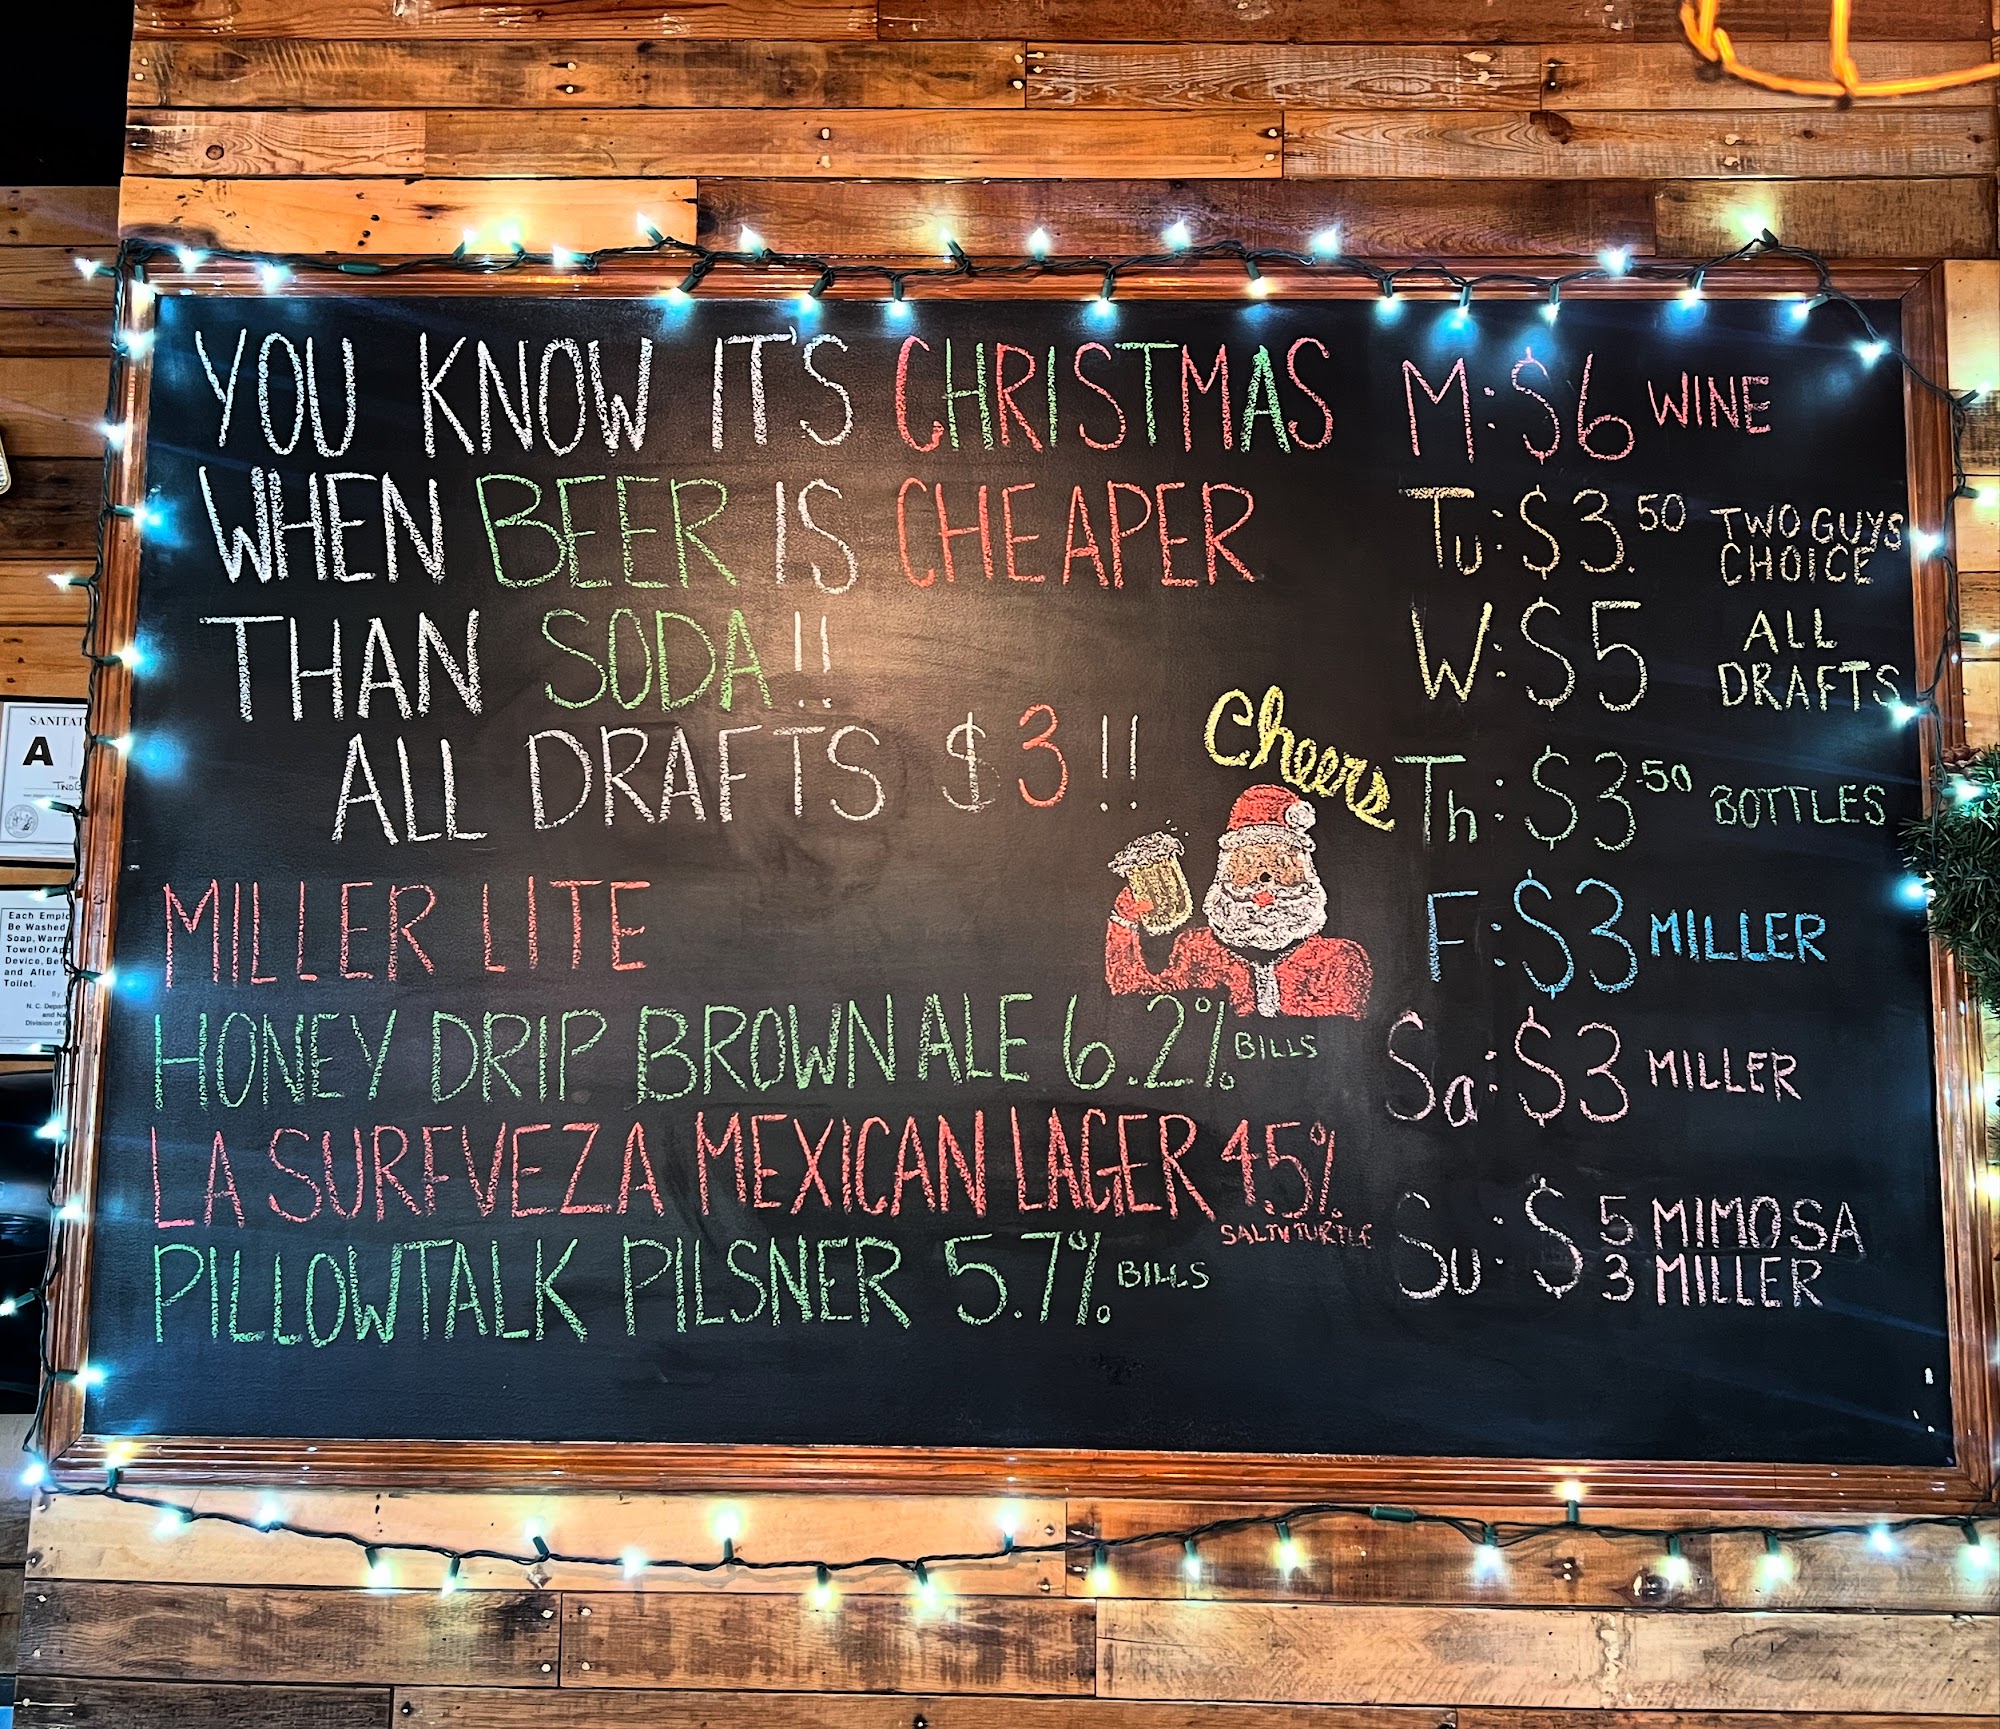 YOU KNOW IT'S CHRISTMAS
WHEN BEER IS CHEAPER
THAN SODA!!
ALL DRAFTS $3!!
Cheers
MILLER LITE
HONEY DRIP BROWN ALE 6.2% BILLS
LA SURFVEZA MEXICAN LAGER 45%
SALTY TURTLE
PILLOWTALK PILSNER 5.7% BILLS
M: $6 WINE
Tu: $3.50 TWO GUYS
CHOICE
W: $5 ALL
DRAFTS
Th: $3.50 BOTTLES
F: $3 MILLER
Sa: $3 MILLER
Su: $5 MIMOSA
3 MILLER
A
Each
Be Washed
Soap, Warm
Towel Or
Device,
and After
Toilet.
By
N. C.
and
Division of